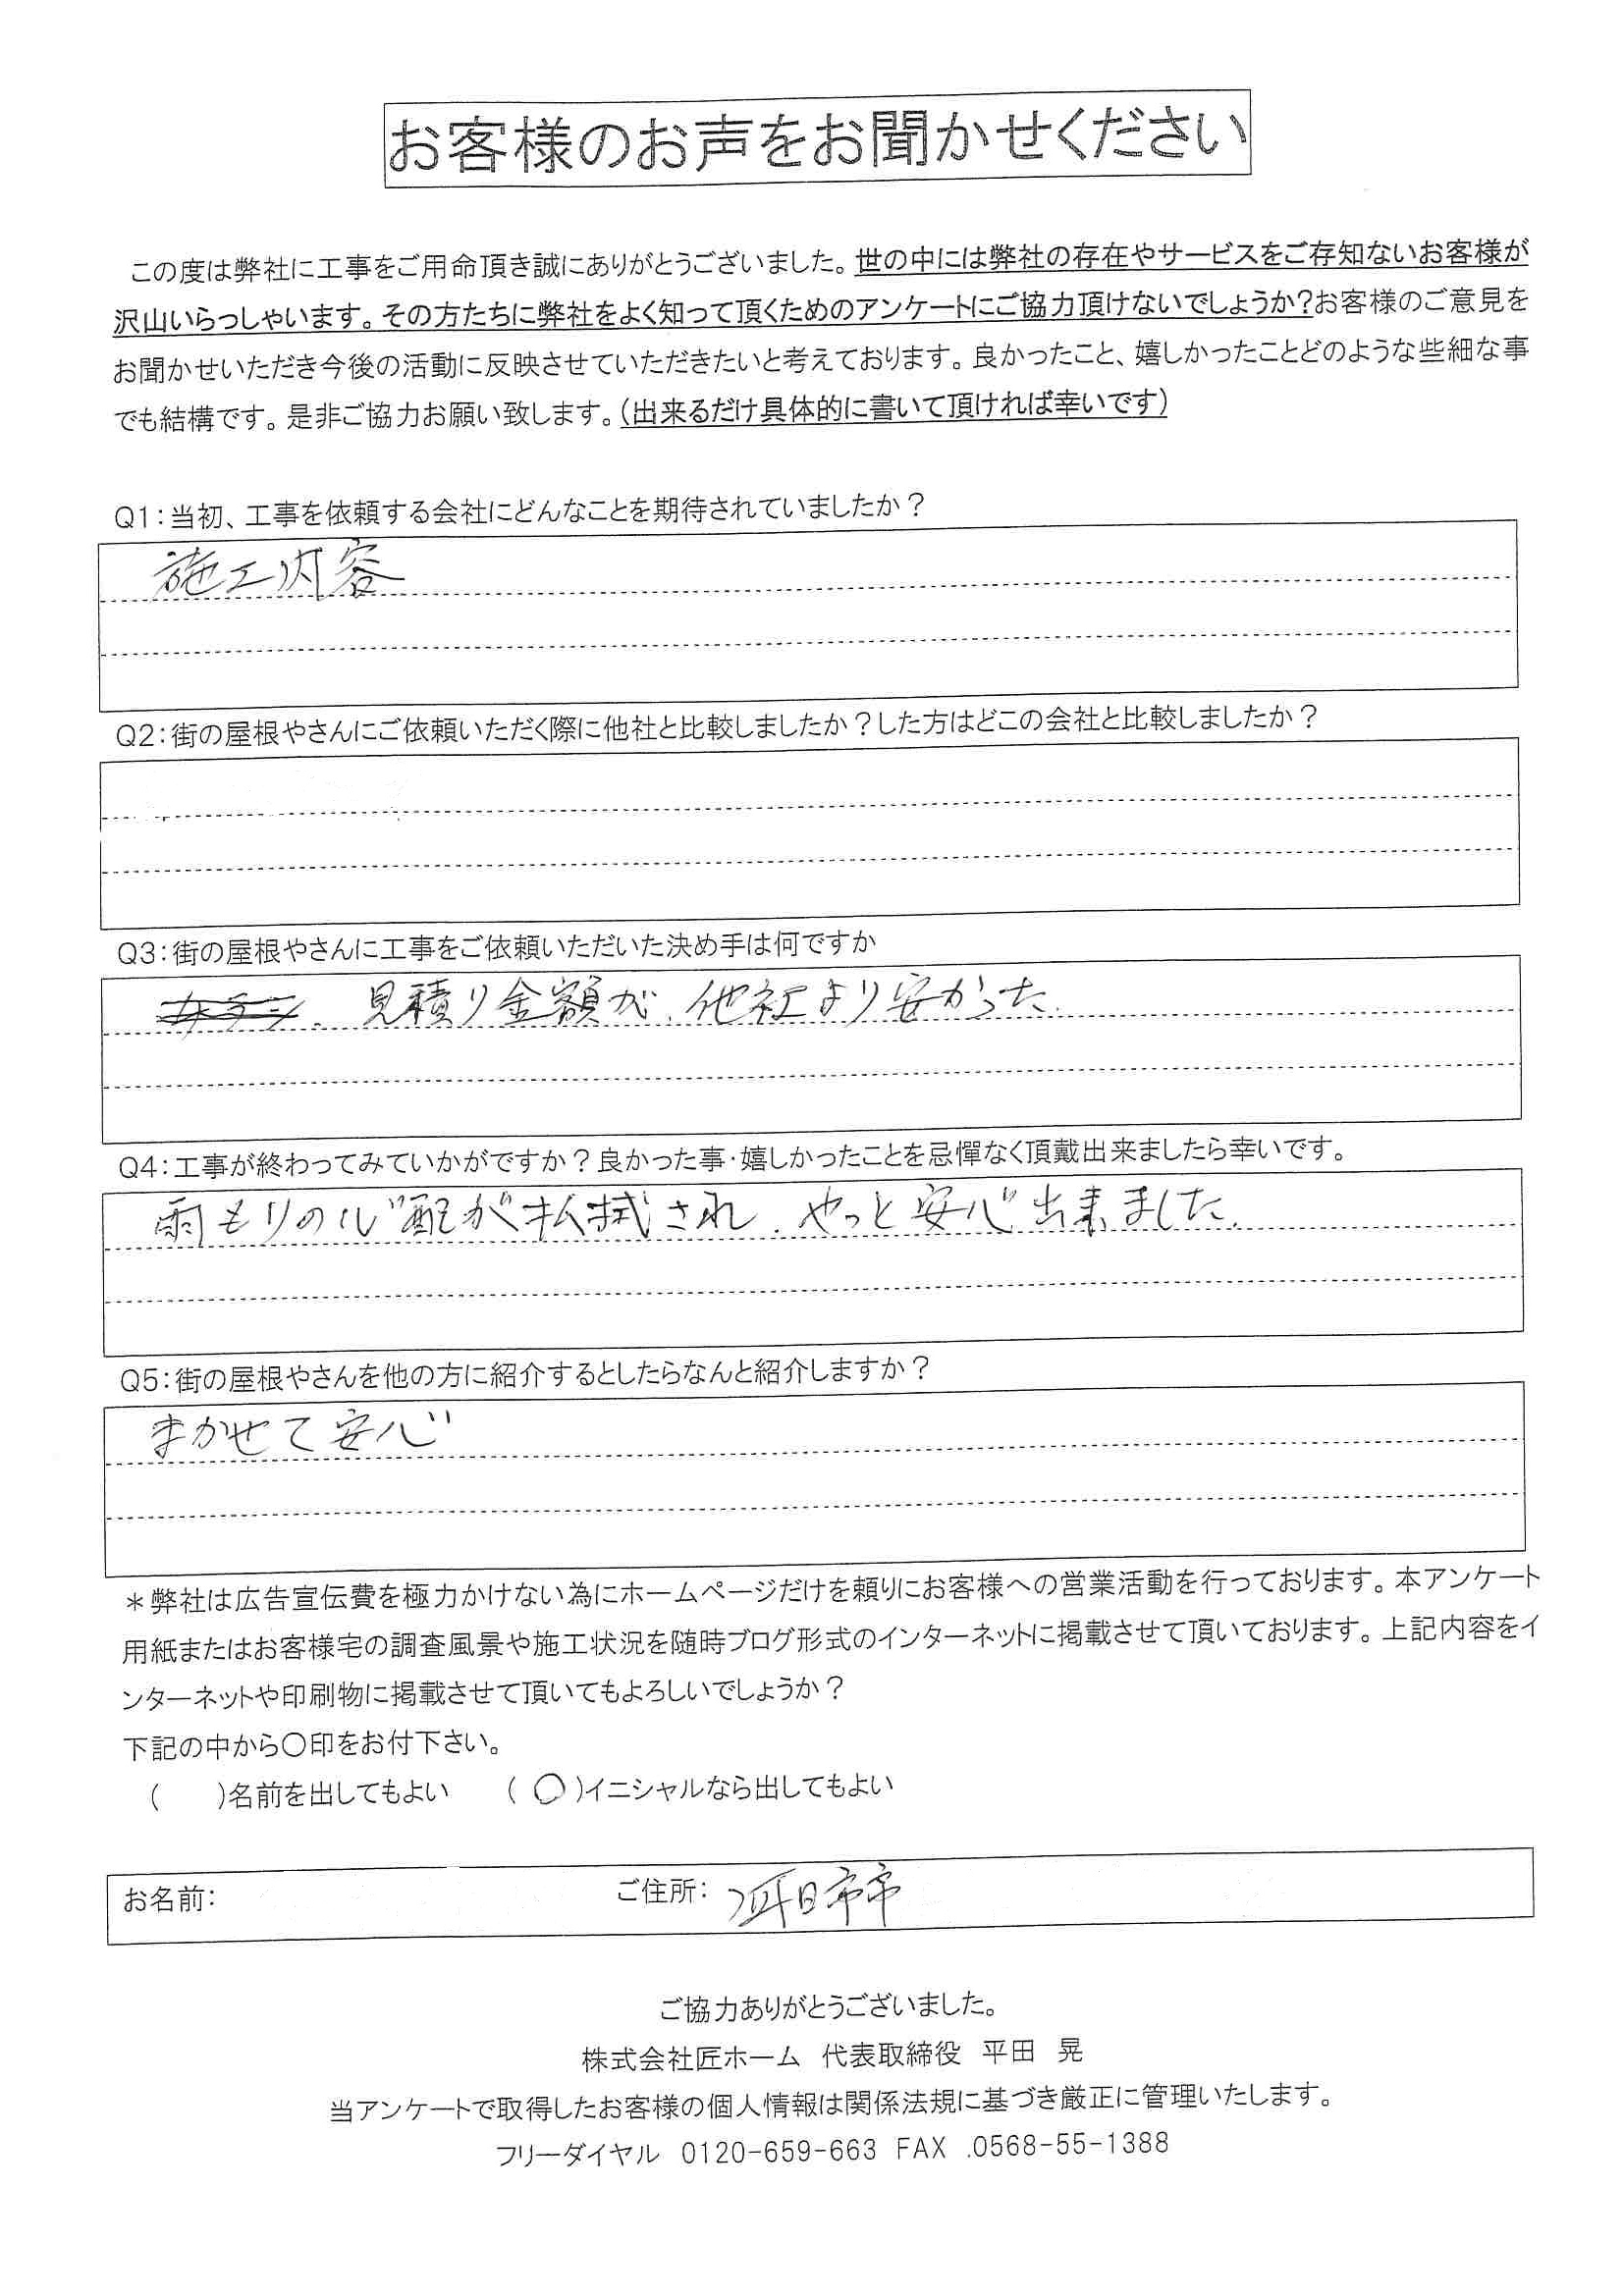 お客様のお声をお聞かせください
この度は弊社に工事をご用命頂き誠にありがとうございました。世の中には弊社の存在やサービスをご存知ないお客様が
沢山いらっしゃいます。その方たちに弊社をよく知って頂くためのアンケートにご協力頂けないでしょうか?お客様のご意見を
お聞かせいただき今後の活動に反映させていただきたいと考えております。良かったこと、嬉しかったことどのような些細な事
でも結構です。是非ご協力お願い致します。(出来るだけ具体的に書いて頂ければ幸いです)
Q1:当初、工事を依頼する会社にどんなことを期待されていましたか?
施工内容
Q2:街の屋根やさんにご依頼いただく際に他社と比較しましたか?した方はどこの会社と比較しましたか?
Q3:街の屋根やさんに工事をご依頼いただいた決め手は何ですか
見積り金額が、他社より安かった.
Q4:工事が終わってみていかがですか?良かった事・嬉しかったことを忌憚なく頂戴出来ましたら幸いです。
雨もりの心配が払拭され、やっと安心出来ました.
Q5:街の屋根やさんを他の方に紹介するとしたらなんと紹介しますか?
まかせて安心
*弊社は広告宣伝費を極力かけない為にホームページだけを頼りにお客様への営業活動を行っております。本アンケート
用紙またはお客様宅の調査風景や施工状況を随時ブログ形式のインターネットに掲載させて頂いております。上記内容をイ
ンターネットや印刷物に掲載させて頂いてもよろしいでしょうか?
下記の中から〇印をお付下さい。
( )名前を出してもよい (〇)イニシャルなら出してもよい
お名前: ご住所:
ご協力ありがとうございました。
株式会社匠ホーム 代表取締役 平田 晃
当アンケートで取得したお客様の個人情報は関係法規に基づき厳正に管理いたします。
フリーダイヤル 0120-659-663 FAX .0568-55-1388